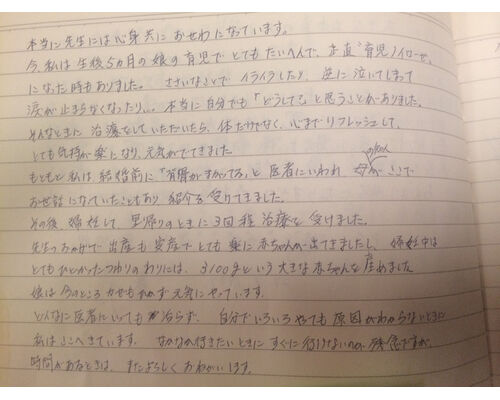 本当に先生には心身共におせわになっています。
今、私は生後5カ月の娘の育児でとてもたいへんで、正直"育児ノイローゼ"
になった時もありました。ささいなことでイライラしたり、逆に泣いてしまって
涙が止まらなくなったり、、本当に自分でも「どうして?」と思うことがありました。
そんなときに治療をしていただいたら、体だけでなく、心までリフレッシュして、
とても気持が楽になり、元気がでてきました
もともと私は結婚前に、「背骨がまがってる」と医者にいわれ 母がここで
お世話になっていたこともあり紹介を受けてきました。
その後、妊娠して、里帰りのときに3回程治療を受けました。
先生のおかげで出産も安産でとても楽に赤ちゃんが出てきましたし、妊娠中は
とてもひどかったつわりのわりには、3100gという大きな赤ちゃんを産めました
娘は今のところカゼもひかず元気にやっています。
どんなに医者にいっても治らず、自分でいろいろやっても原因がわからないときに
私はここへきています。なかなか行きたいときにすぐに行けないのが残念ですが、
時間があるときは、またよろしくおねがいします。